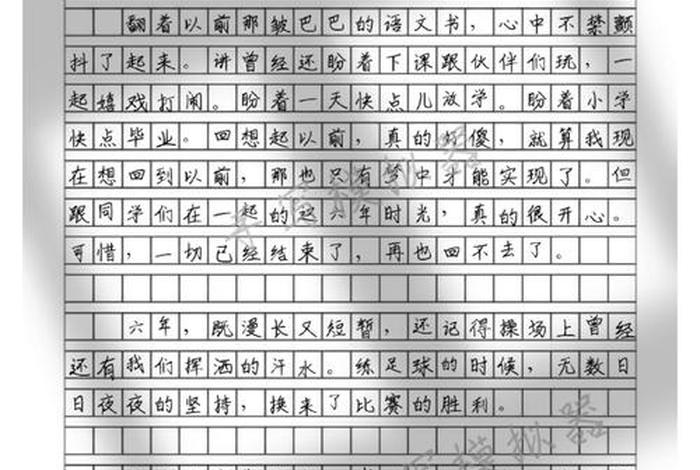 翻着以前那皱巴巴的语文书，心中不禁颤
抖了起来。讲曾经还盼着下课跟伙伴们玩，一
起嬉戏打闹。盼着一天快点儿放学。盼着小学
快点毕业。回想起以前，真的好傻，就算我现
在想回到以前，那也只有梦中才能实现了。但
跟同学们在一起的这六年时光，真的很开心。
可惜，一切已经结束了，再也回不去了。
六年，既漫长又短暂，还记得操场上曾经
还有我们挥洒的汗水。练足球的时候，无数日
日夜夜的坚持，换来了比赛的胜利。
手写模拟器
写模拟器